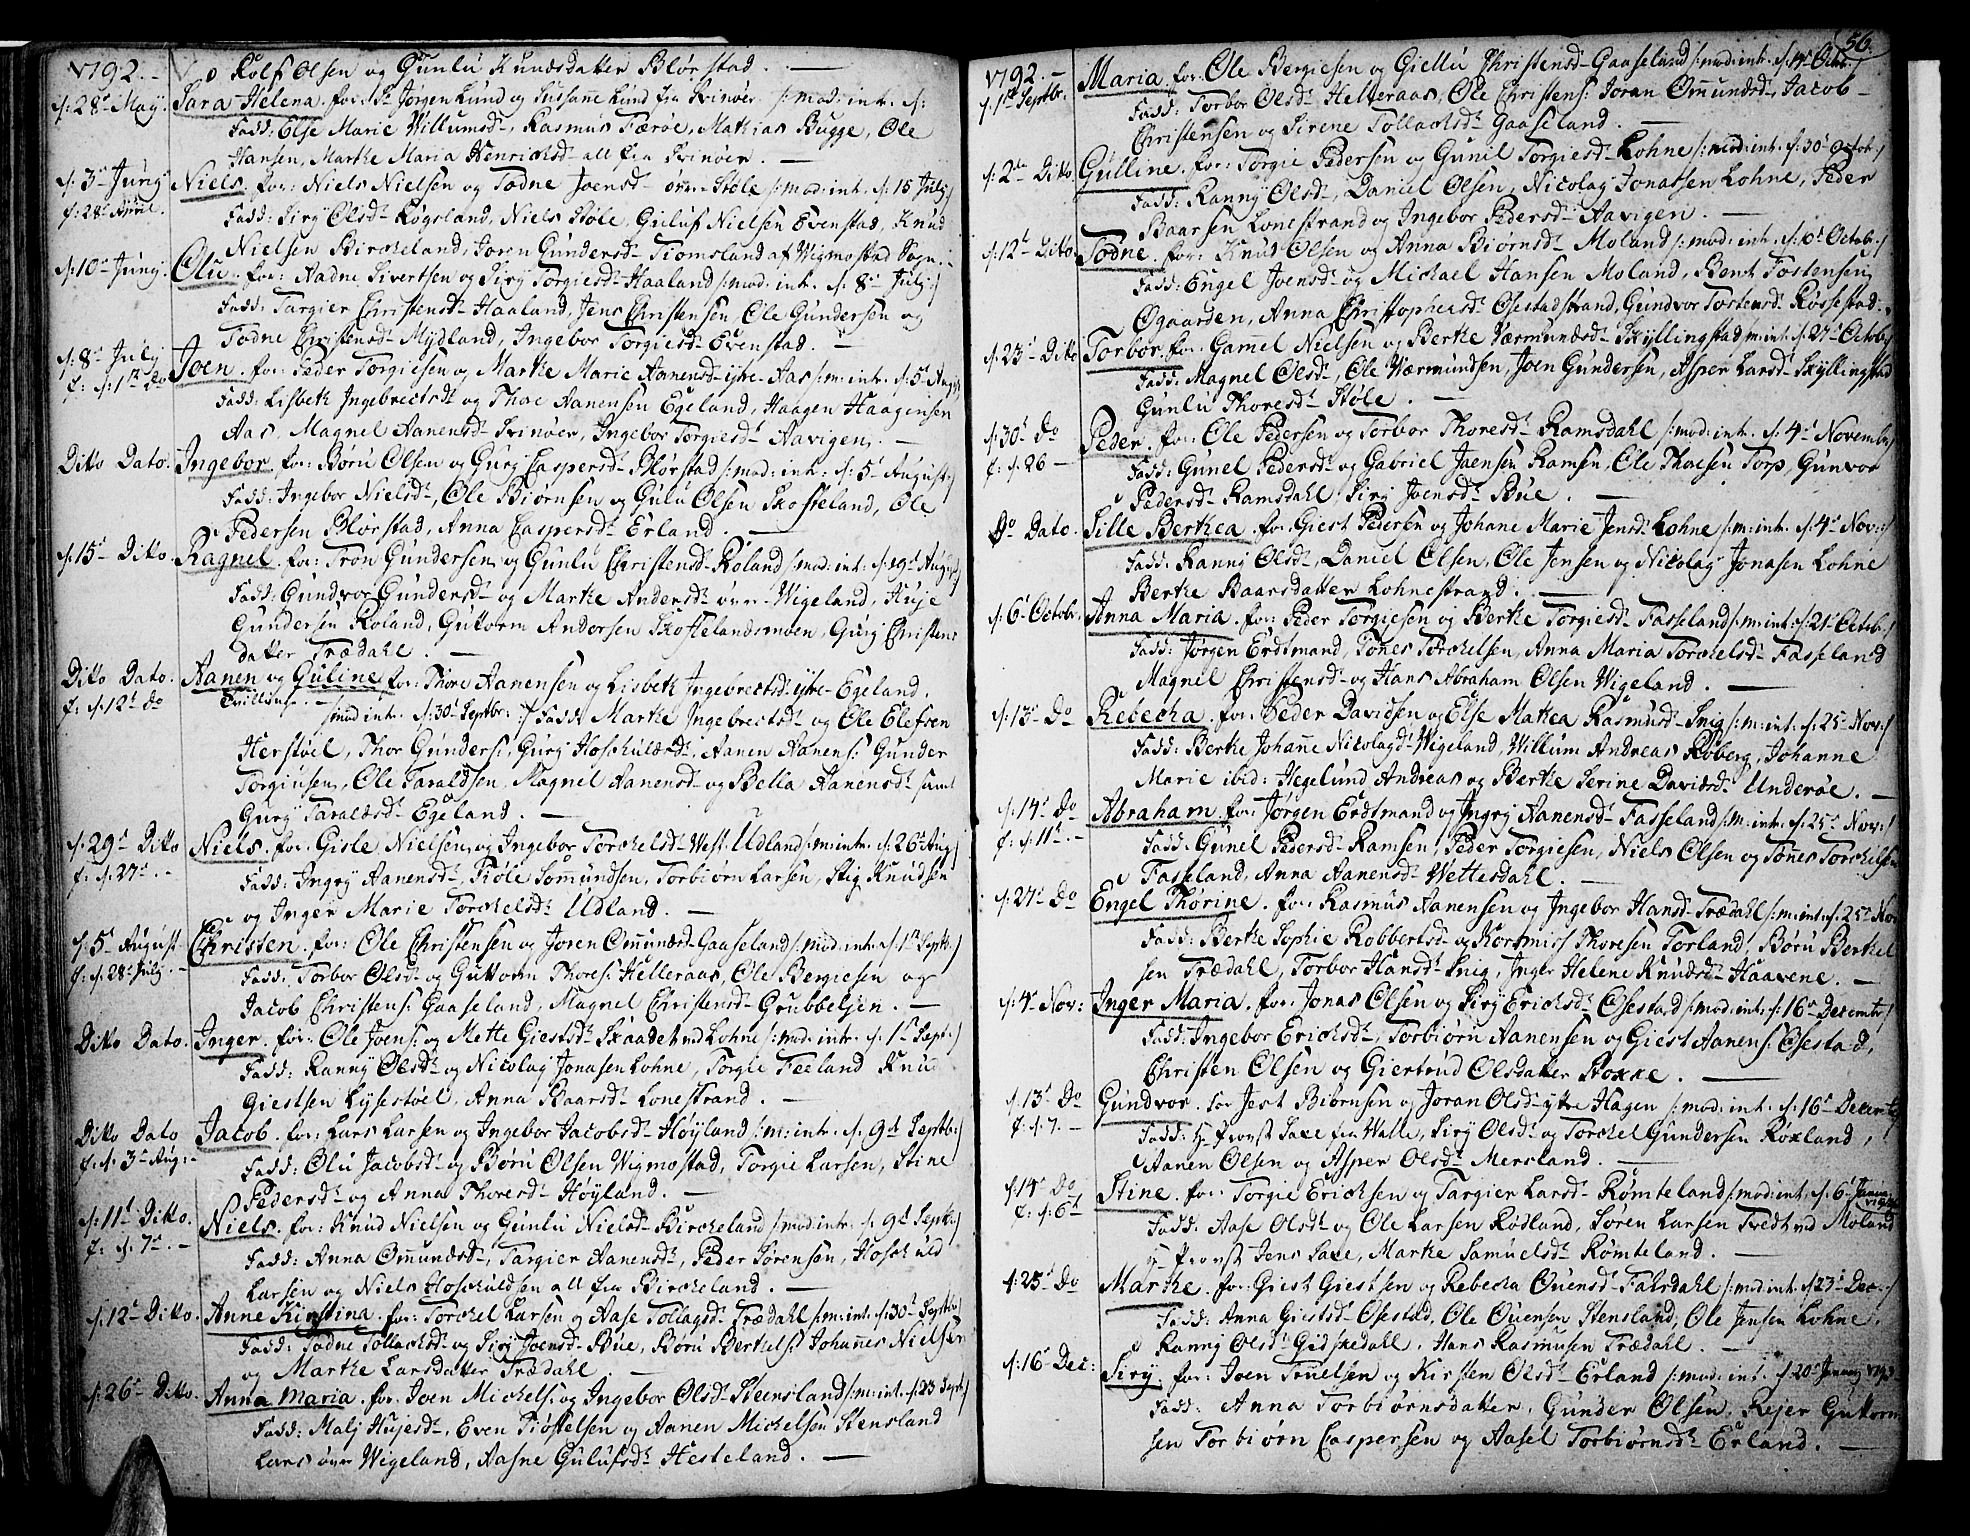 1792. – Rolf Olsen og Gunlu Knudsdatter Blørstad. –
d: 28de May. Sara Helena. for: Sr Jørgen Lund og Susane Lund fra Svinøer /: mod: int: d:
Fadd: Else Marie Villumsd:, Rasmus Færøe, Mathias Bugge, Ole
Hansen, Marthe Maria Henrichsd: all fra Svinøer. –
d: 3de Junj Niels. for: Niels Nielsen og Todne Joensd: øvr: Støle /: mod: int: d: 15 Julj :/
f: 28de April. Fadd: Sirj Olsd: Røgsland, Niels Støle, Guluf Nielsen Evenstad, Knud
Nielsen Birckeland, Joren Gundersd: Tiomsland af Wigmostad Sogn. –
d: 10de Junj. Olu. for: Aadne Sivertsen og Sirj Torgiesd: Haaland /: mod: int: d: 8de Julj :/
Fadd: Targier Christensd: Haaland, Jens Christensen, Ole Gundersen og
Todne Christensd: Mydland, Ingebor Torgiesd: Evenstad. –
d: 8de July Joen. for: Peder Torgiesen og Marthe Marie Aanensd: ytre Aas /: m: int: d: 5te Aug: :/
f: d: 1ste Do Fadd: Lisbeth Ingebrectsd: og Thore Aanensen Egeland, Haagen Haagensen
Aas, Magnel Aanensd: Svinøer, Ingebor Torgiesd: Aavigen. –
Ditto Dato: Ingebor. for: Børu Olsen og Gurj Caspersd: Blørstad /: mod: int: d: 5te August :/
Fadd: Ingebor Nielsd:, Ole Biørnsen og Gulu Olsen Skofteland, Ole
Pedersen Blørstad, Anna Caspersd: Erland. –
d: 15de Ditto Ragnel. for: Tron Gundersen og Gunlu Christensd: Roland /: mod: int: d: 19de Aug: :/
Fadd: Gundvor Gundersd: og Marthe Andersd: øvr: Wigeland, Huje
Gundersen Roland, Guttorm Andersen Skoftelandsmoen, Gurj Christens
datter Trædahl. –
Ditto Dato. Aanen og Guline. for: Thore Aanensen og Lisbeth Ingebrectsd: ytre Egeland.
f: d: 12te Do Tvillinge. /: mod: int: d: 30te Septbr: :/ Fadd: Marthe Ingebrectsd: og Ole Elefsen
Herstøel, Thor Gunders:, Gurj Hoschuldsd:, Aanen Aanens:, Gunder
Torgiusen, Ole Taraldsen, Magnel Aanensd: og Bella Aanensd: samt
Gurj Taraldsd: Egeland. –
d: 29de Ditto Niels. for: Gisle Nielsen og Ingebor Torchelsd: West: Udland /: m: int: d: 26de Aug :/
f: d: 27de. – Fadd: Ingrj Aanensd:, Fiøle Somundsen, Torbiørn Larsen, Stig Knudsen
og Inger Marie Torchelsd: Udland. –
d: 5te August Christen. for: Ole Christensen og Joren Omundsd: Gaaseland /: mod: int: d: 1ste Septbr: :/
f: d: 28de July. Fadd: Torbor Olsd: og Guttorm Thores: Helleraas, Ole Bergiesen og
Jacob Christens: Gaaseland, Magnel Christensd: Grubbelsen. –
Ditto Dato. Inger. for: Ole Joens: og Mette Giestsd: Skaadet ved Lohne /: mod: int: d: 1ste Septb: :/
Fadd: Ranny Olsd: og Nicolay Jonasen Lohne, Torgie Feeland Knud
Giestsen Lysestøel, Anna Baarsd: Lonestrand. –
Ditto Dato Jacob. for: Lars Larsen og Ingebor Jacobsd: Høyland /: m: int: d: 9de Septb: :/
f: d: 3de Aug: – Fadd: Olu Jacobsd: og Børu Olsen Wigmostad, Torgie Larsen, Stine
Pedersd: og Anna Thoresd: Høyland. –
d: 11te Ditto. Niels. for: Knud Nielsen og Gunlu Nielsd: Birckeland /: mod: int: d: 9de Septb: :/
f: d: 7de. – Fadd: Anna Omundsd:, Targier Aanensd:, Peder Sørensen, Hoschuld
Larsen og Niels Hoschuldsen all fra Birckeland. –
d: 12te Ditto. Anne Kirstina. for: Torchel Larsen og Aase Tollagsd: Trædahl /: m: int: d: 30te Septbr :/
Fadd: Todne Tollachsd: og Sirj Joensd: Bue, Børu Berthels: Johanes Nielsen
og Marthe Larsdatter Trædahl –
d: 26de Ditto. Anna Maria. for: Joen Michels: og Ingebor Olsd: Steensland /: m: int: d: 23 Septb: :/
Fadd: Malj Hujesd:, Even Tiøstelsen og Aanen Michelsen Stensland
Lars øvr: Wigeland, Aasne Gulufsd: Hesteland. –
56.
1792. – Maria. for: Ole Bergiesen og Giellu Christensd: Gaaseland /: mod: int: d: 14de Octbr: :/
d: 1ste Septbr. Fadd: Torbor Olsd: Helleraas, Ole Christens: Joran Omundsd:, Jacob
Christensen og Sirene Tollachsd: Gaaseland. –
d: 2de Ditto Gulline. for: Torgie Pedersen og Gunil Torgiesd: Lohne /: mod: int: d: 30te Octob: :/
Fadd: Ranny Olsd:, Daniel Olsen, Nicolay Jonassen Lohne, Peder
Baarsen Lonestrand og Ingebor Pedersd: Aavigen. –
d: 12te Dito. Todne. for: Knud Olsen og Anna Biørnsd: Moland /: mod: int: d: Octob: :/
Fadd: Engel Joensd: og Michael Hansen Moland, Bent Tostensen
Øgaarden, Anna Christophersd: Osestadstrand, Gundvor Tostensd: Røssestad.
d: 23de Ditto Torbor. for: Gamel Nielsen og Berthe Værmundsd: Skyllingstad m: int: d: 27de Octob:
Fadd: Magnel Olsd:, Ole Værmundsen, Joen Gundersen, Asper Larsd: Skyllingstad
Gunlu Thoresd: Støle. –
d: 30te Do Peder. for: Ole Pedersen og Torbor Thoresd: Ramsdahl /: mod: int: d: 4de Novembr: :/
f: d: 26 – Fadd: Gunel Pedersd: og Gabriel Joensen Ramsen, Ole Thorsen Torp, Gunvor
Pedersd: Ramsdahl, Sirj Joensd: Bue. –
Do Dato. Sille Berthea. for: Giest Pedersen og Johane Marie Jensd: Lohne /: m: int: d: 4de Nov: :/
Fadd: Ranny Olsd:, Daniel Olsen, Ole Jensen og Nicolay Jonasen Lohne
Berthe Baarsdatter Lohnestrand. –
d: 6te Octobr: Anna Maria. for: Peder Torgiesen og Berthe Torgiesd: Fasseland /: m: int: d: 21de Octob: :/
Fadd: Jørgen Erdtmand, Tønes Torchelsen, Anna Maria Torchelsd: Fasseland
Magnel Christensd: og Hans Abraham Olsen Wigeland. –
d: 13de Do Rebecka. for: Peder Davidsen og Else Mattea Rasmusd: Snig /: m: int: d: 25de Nov: :/
Fadd: Berthe Johane Nicolaysd: Wigeland, Willum Andreas Roberg, Johanne
Marie ibid: Hegelund Andreas og Berthe Serine Davidsd: Underøe. –
d: 14de Do Abraham. for: Jørgen Erdtmand og Ingrj Aanensd: Fasseland /: m: int: d: 25de Nov: :/
f: d: 11te. – Fadd: Gunel Pedersd: Ramsen, Peder Torgiesen, Niels Olsen og Tønes Torchelsen
Fasseland, Anna Aanensd: Wettesdahl. –
d: 27de Do Engel Thorine. for: Rasmus Aanensen og Ingebor Hansd: Trædahl /: m: int: d: 25de Nov:
Fadd: Berthe Sophie Robbertsd: og Kormiss Thoresen Torland, Børu Berthel
sen Trædahl, Torbor Hansd: Snig, Inger Helene Knudsd: Haavene. –
d: 4de Nov: Inger Maria. for: Jonas Olsen og Sirj Erichsd: Osestad /: mod: int: d: 16de Decembr :/
Fadd: Ingebor Erichsd:, Torbiørn Aanensen og Giest Aanens: Osestad,
Christen Olsen og Giertrud Olsdatter Stokke. –
d: 13de Do Gundvor. for Jest Biørnsen og Joran Olsd: ytre Hagen /: mod: int: d: 16de Decembr :/
f: d: 7. – Fadd: Hr Provst Saxe fra Walle, Sirj Olsd: og Torchel Gundersen Roxland,
Aanen Olsen og Asper Olsd: Mersland. –
d: 14de Do Stine. for: Torgie Erichsen og Targier Larsd: Rømteland /: mod: int: d: 6te Januar 1793 :/
f: d: 6te Fadd: Aase Olsd: og Ole Larsen Rødland, Søren Larsen Tvedt ved Moland
Hr Provst Jens Saxe, Marthe Samuelsd: Rømteland. –
d: 25de Do Marthe. for: Giest Giestsen og Rebecka Ouensd: Fahrdahl /: mod: int: d: 23de Dec: :/
Fadd: Anna Giestsd: Osestad, Ole Ouensen Stensland, Ole Jensen Lohne,
Ranny Olsd: Gidskedahl, Hans Rasmusen Trædahl. –
d: 16de Dec: Sirj. for: Joen Truelsen og Kirsten Olsd: Erland /: mod: int: d: 20de Januarj 1793
Fadd: Anna Torbiørnsdatter, Gunder Olsen, Rejer Guttorm
sen Torbiørn Caspersen og Aasel Torbiørnsd: Erland. –